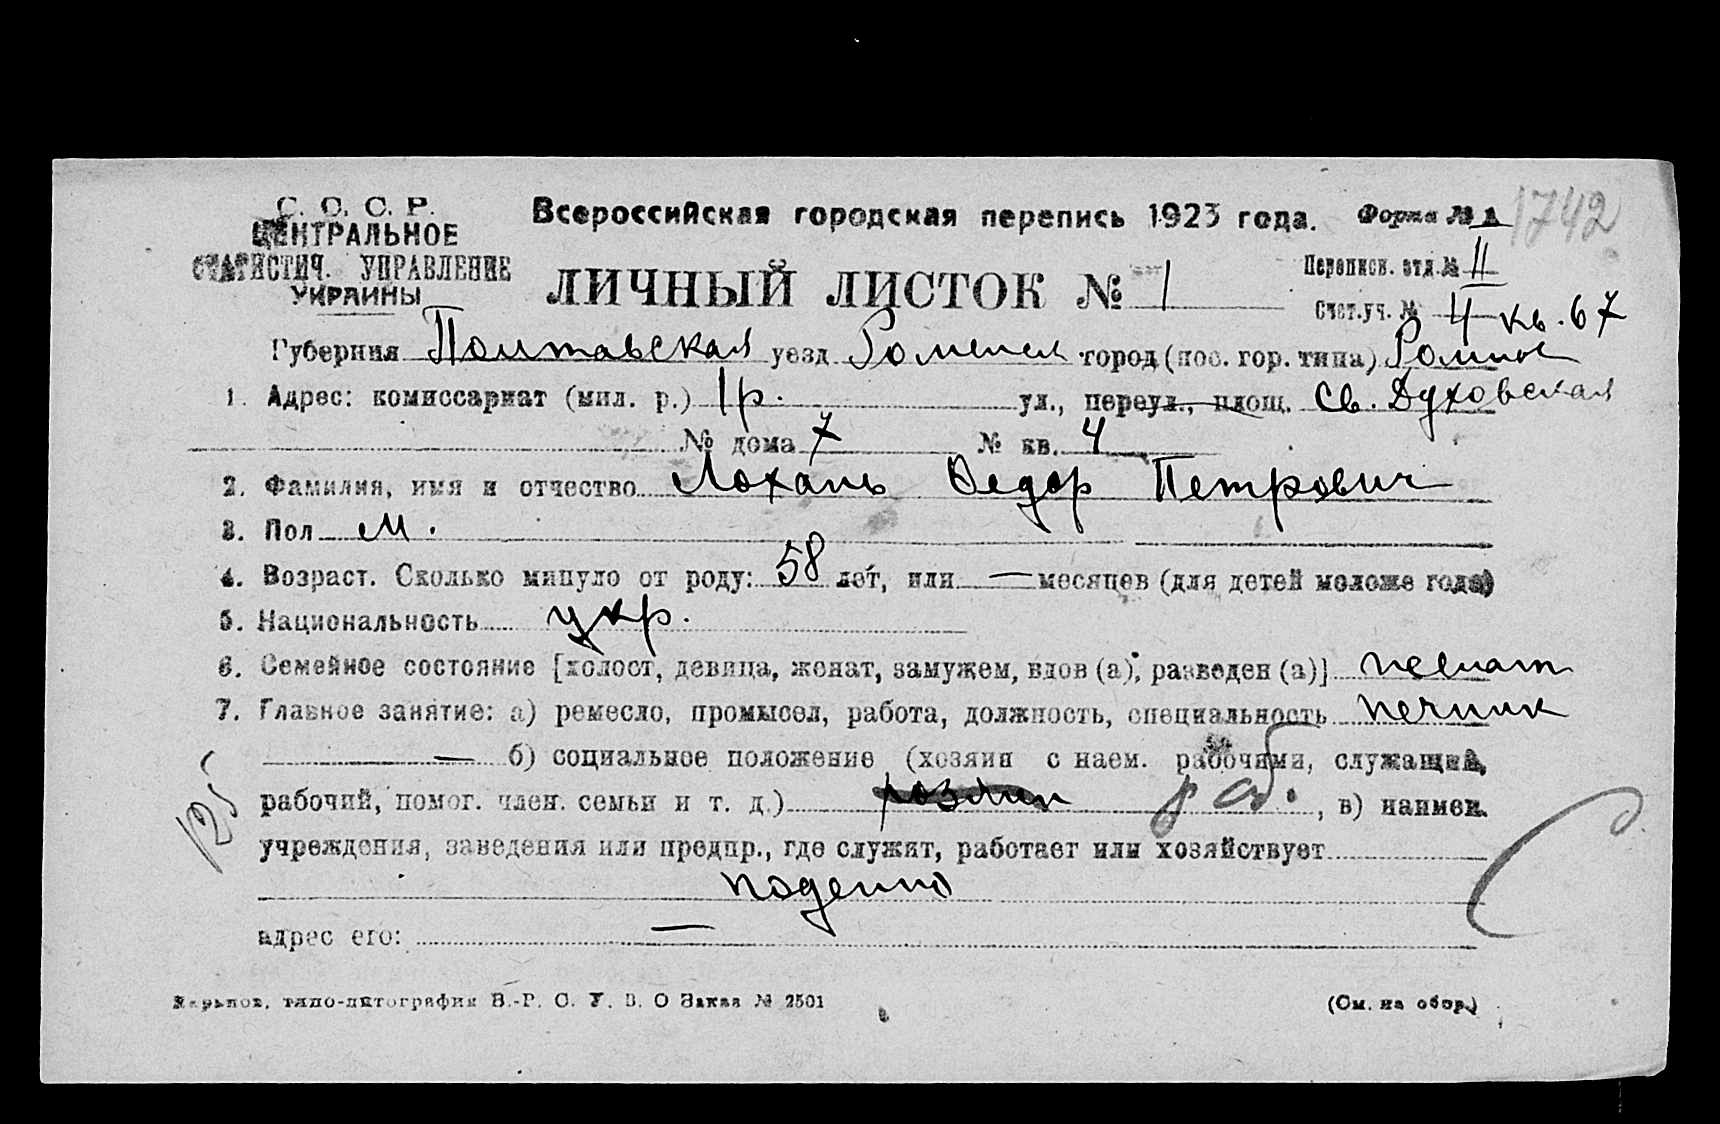 С. С. С. Р.
ЦЕНТРАЛЬНОЕ
СТАТИСТИЧ. УПРАВЛЕНИЕ
УКРАИНЫ
Всероссийская городская перепись 1923 года. Форма № 1742
ЛИЧНЫЙ ЛИСТОК № 1
Переписн. отд. № II
Счет.уч. № 4 кв. 67
Губерния Полтавская уезд Роменск город (пос. гор. типа) Ромны
1. Адрес: комиссариат (мил. р.) 1 р. ул., переул., площ. Св. Духовская
№ дома 7 № кв. 4
2. Фамилия, имя и отчество Лохань Федор Петрович
3. Пол м.
4. Возраст. Сколько минуло от роду: 58 лет, или — месяцев (для детей моложе года)
5. Национальность укр.
6. Семейное состояние [холост, девица, женат, замужем, вдов (а), разведен (а)] женат
7. Главное занятие: а) ремесло, промысел, работа, должность, специальность печник
— б) социальное положение (хозяин с наем. рабочими, служащий,
рабочий, помог. член. семьи и т. д.) раб. , в) наимен.
учреждения, заведения или предпр., где служит, работает или хозяйствует
поденно
адрес его: —
125
Харьков, типо-литография В.-Р. С. У. В. О Заказ № 2501
(См. на обор.)